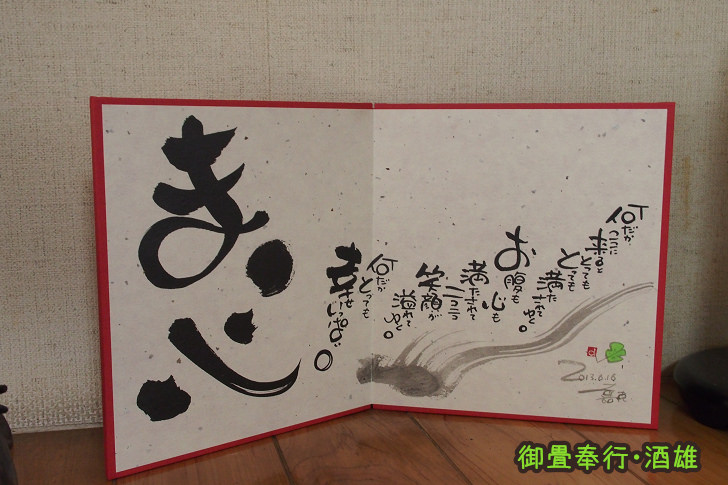 ま心
何だか
ここに
来ると
とっても
とても
満たされて
ゆく。
お腹も
心も
満たされて
ニコニコ
笑顔が
溢れて
ゆく。
何だか
とっても
幸せいっぱい。
2013.6.16
御畳奉行・酒雄